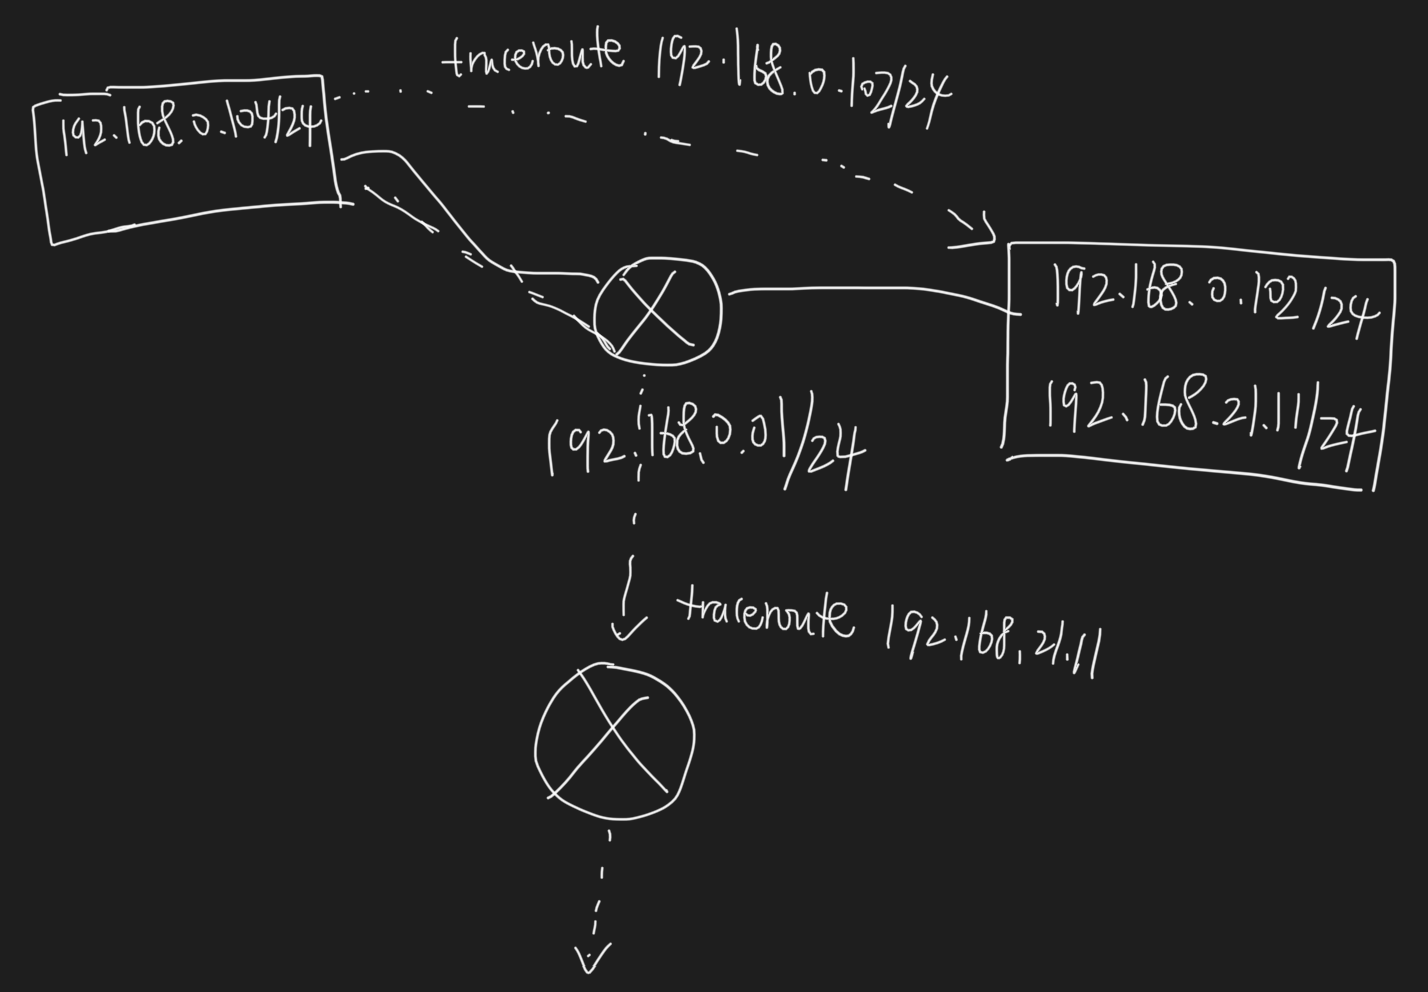 traceroute 192.168.0.102/24
192.168.0.104/24
192.168.0.102/24
192.168.21.11/24
192.168.0.01/24
traceroute 192.168.21.11